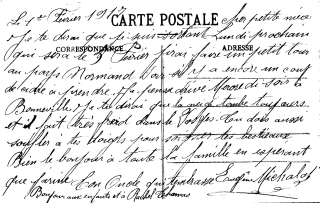 Le 1er Février 1917
CARTE POSTALE
Cher petite niece
Je te dirai que je suis partant Lundi prochain
CORRESPONDANCE
ADRESSE
qui sera le 5 Février j'irai faire un petit tour
au pays Normand voir s'il y a encore un coup
de cidre a prendre. Je pense arrivé Mardi soir à
Bonneville Je te dirai que la neige tombe toujours
et il fait très froid dans les Vosges. Tu dois aussi
souffler a tes doigts pour soigner tes bestiaux
Bien le bonjour à toute la famille en esperant
que j'arrive Ton Oncle qui t'embrasse Eugène Michalot
Bonjour aux enfants et à Rachel